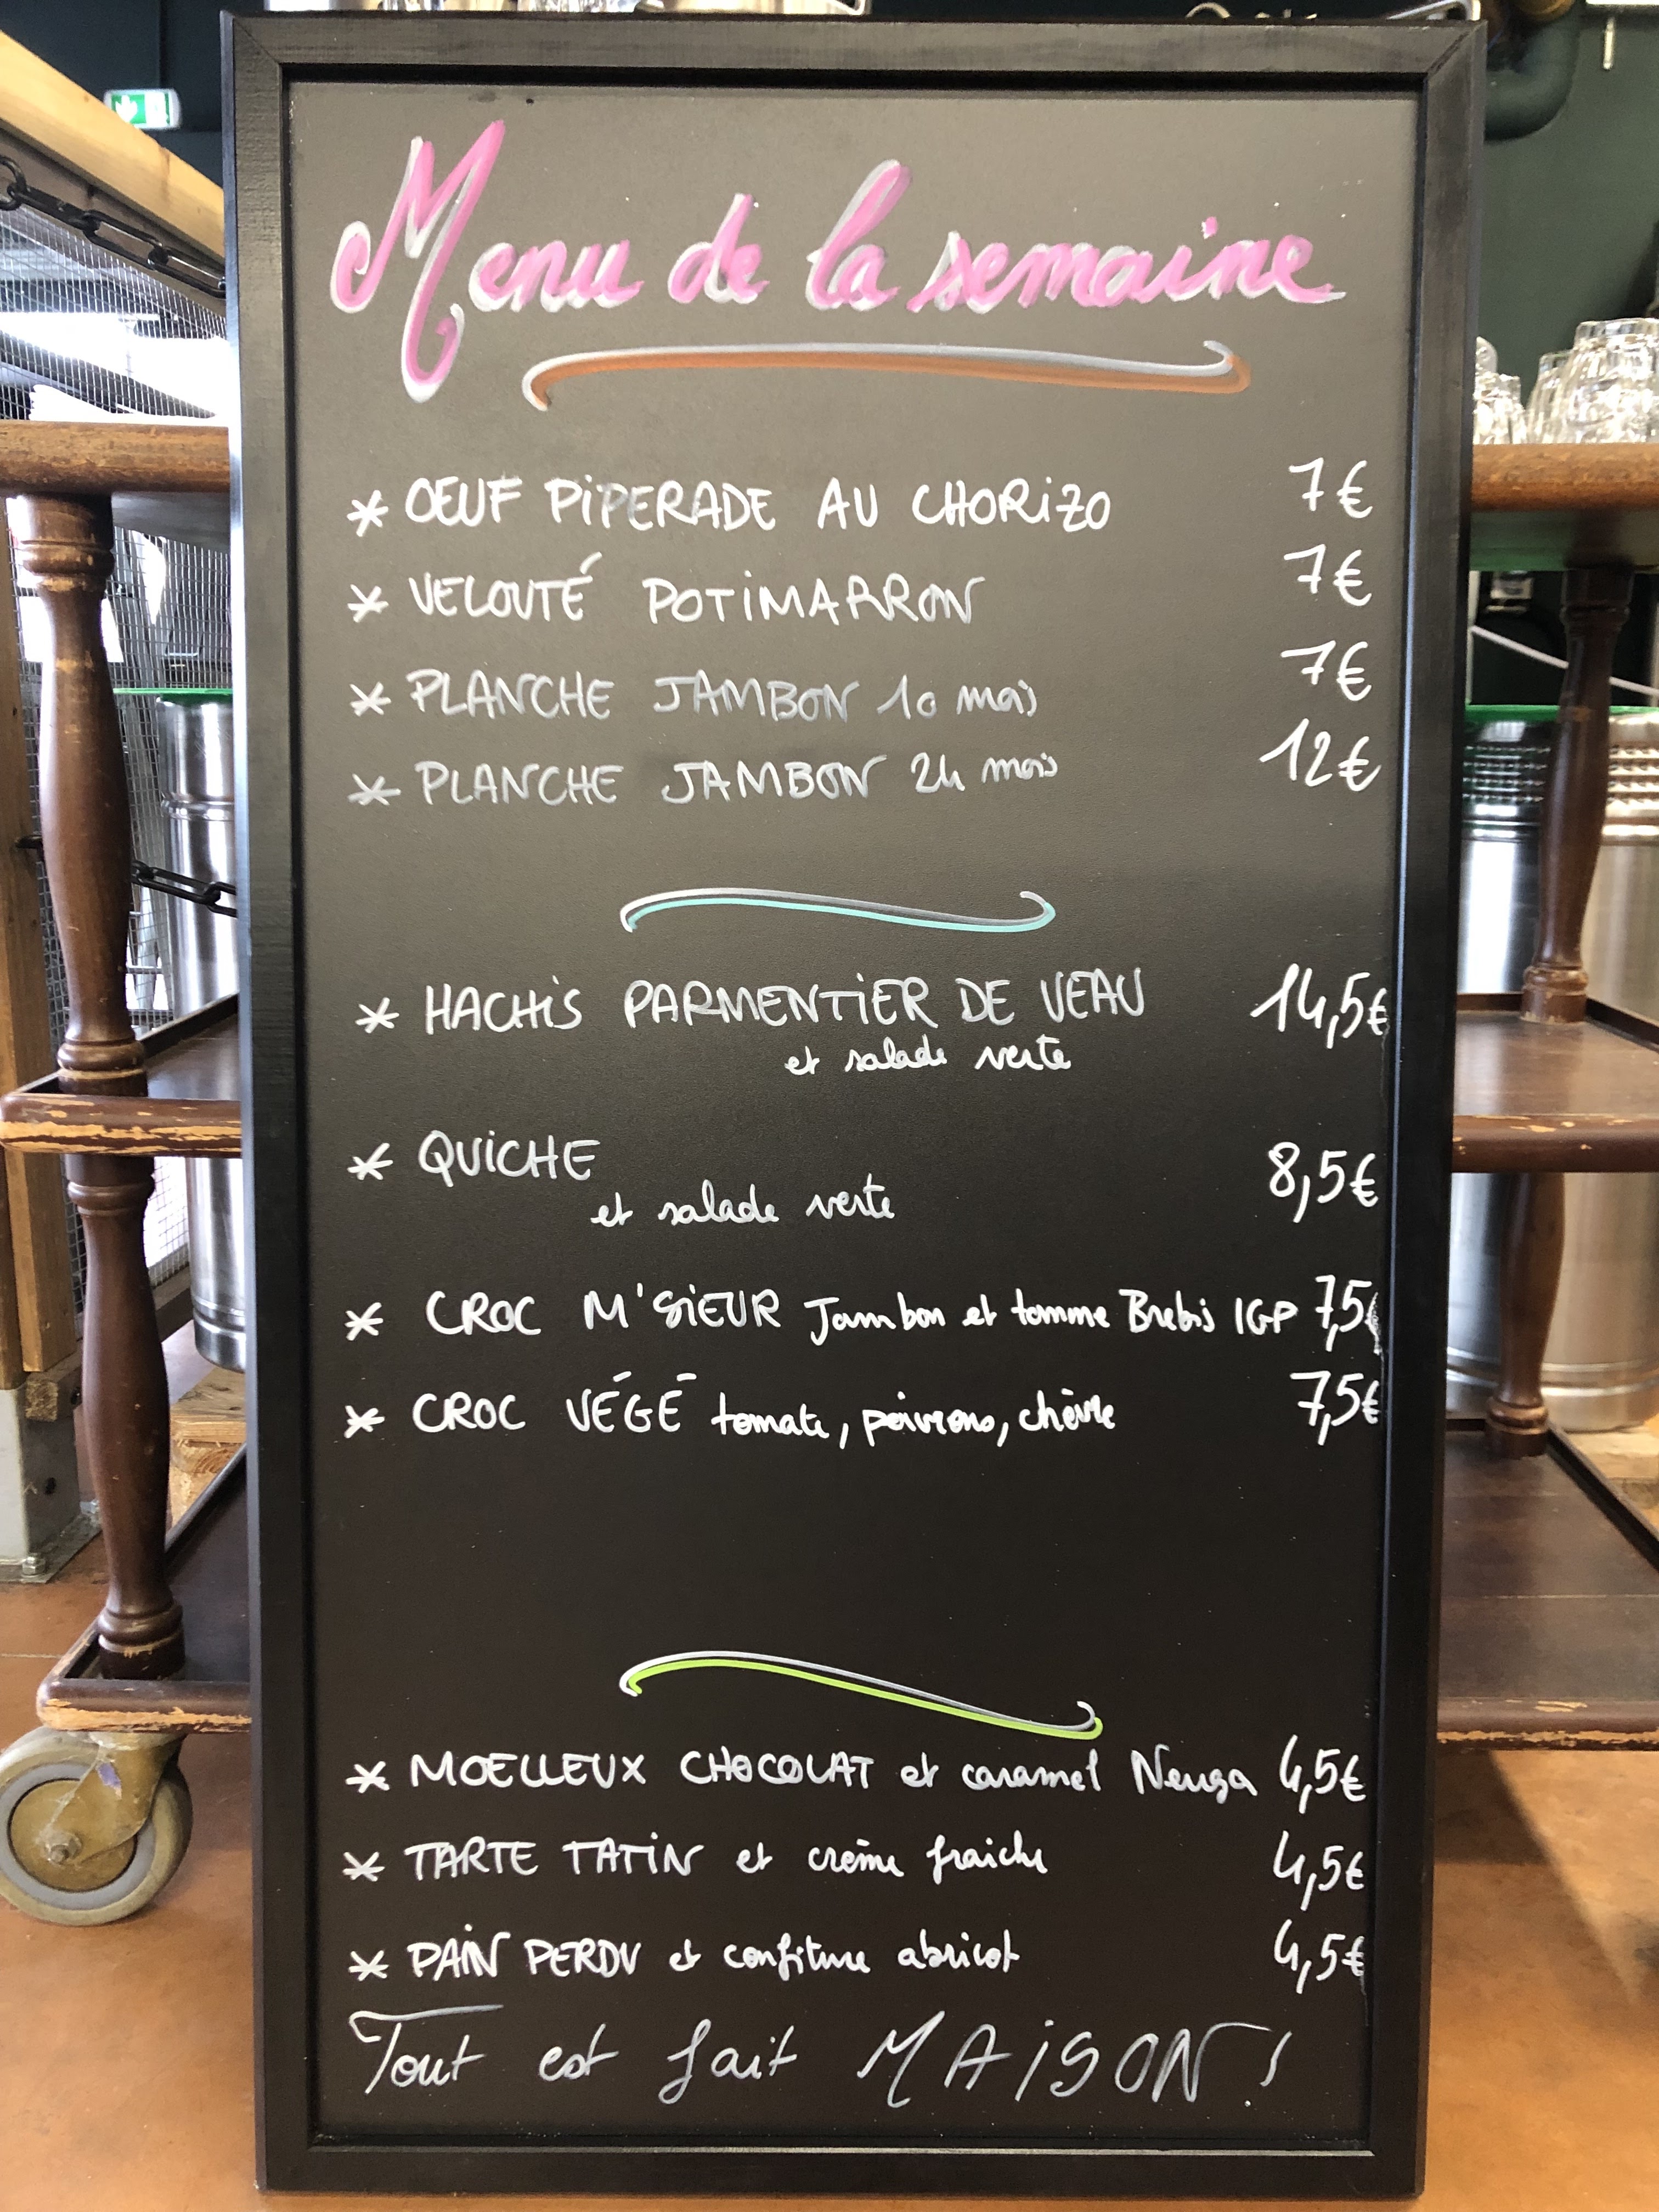 Menu de la semaine
* OEUF PIPERADE AU CHORIZO 7€
* VELOUTÉ POTIMARRON 7€
* PLANCHE JAMBON 10 mois 7€
* PLANCHE JAMBON 24 mois 12€
* HACHIS PARMENTIER DE VEAU 14,5€
et salade verte
* QUICHE 8,5€
et salade verte
* CROC M'SIEUR Jambon et tomme Brebis IGP 7,5€
* CROC VÉGÉ tomate, poivrons, chèvre 7,5€
* MOELLEUX CHOCOLAT et caramel Nenga 4,5€
* TARTE TATIN et crème fraiche 4,5€
* PAIN PERDU et confiture abricot 4,5€
Tout est fait MAISON !